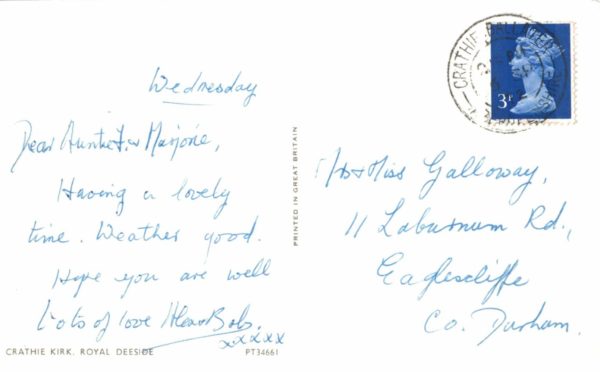 Wednesday
Dear Auntie F. & Marjorie,
Having a lovely
time. Weather good.
Hope you are well
Lots of love Bob.
xxxxx
CRATHIE KIRK, ROYAL DEESIDE
PT34661
PRINTED IN GREAT BRITAIN
CRATHIE BALLATER
3P
Miss Galloway,
11 Laburnum Rd.,
Eaglescliffe
Co. Durham.